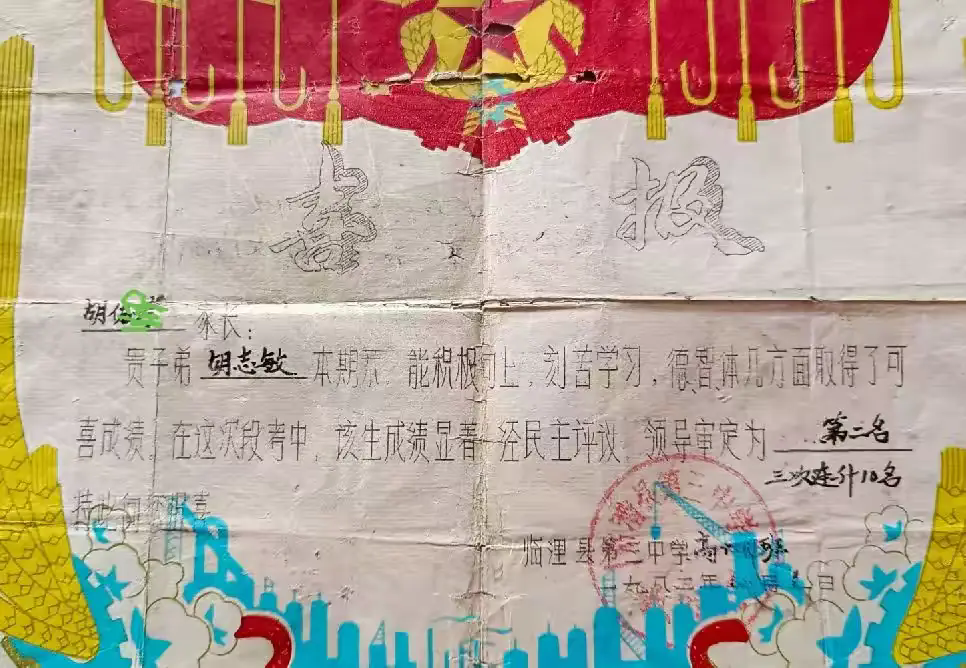 喜报
胡 家长:
贵子弟 胡志敏 本期来,能积极向上,刻苦学习,德智体几方面取得了可
喜成绩,在这次段考中,该生成绩显著,经民主评议,领导审定为 第二名
三次连升10名
特此向 喜
临澧县第二中学高 班
一九八二年 月 日